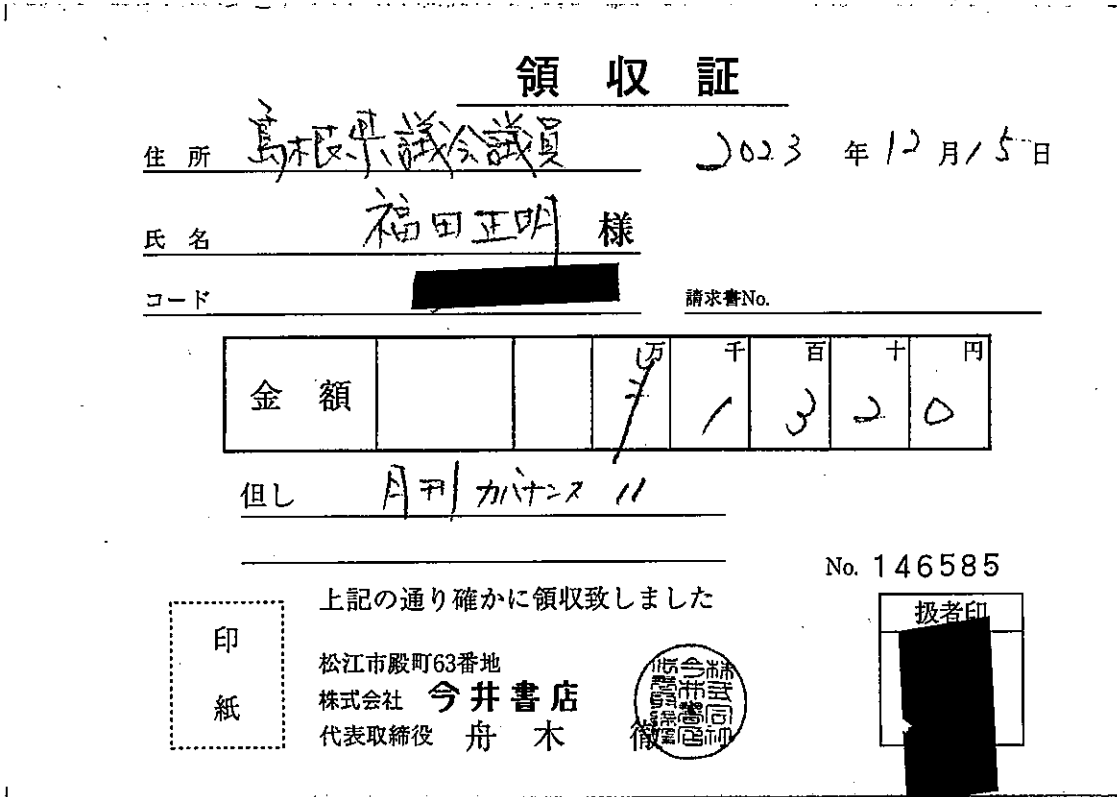 領収証
住所 島根県議会議員 2023年12月15日
氏名 福田正明 様
コード 請求書No.
金額 万 千 百 十 円
1 3 2 0
但し 月刊 ガバナンス 11
No. 146585
上記の通り確かに領収致しました
扱者印
印紙
松江市殿町63番地
株式会社 今井書店
代表取締役 舟木 徹